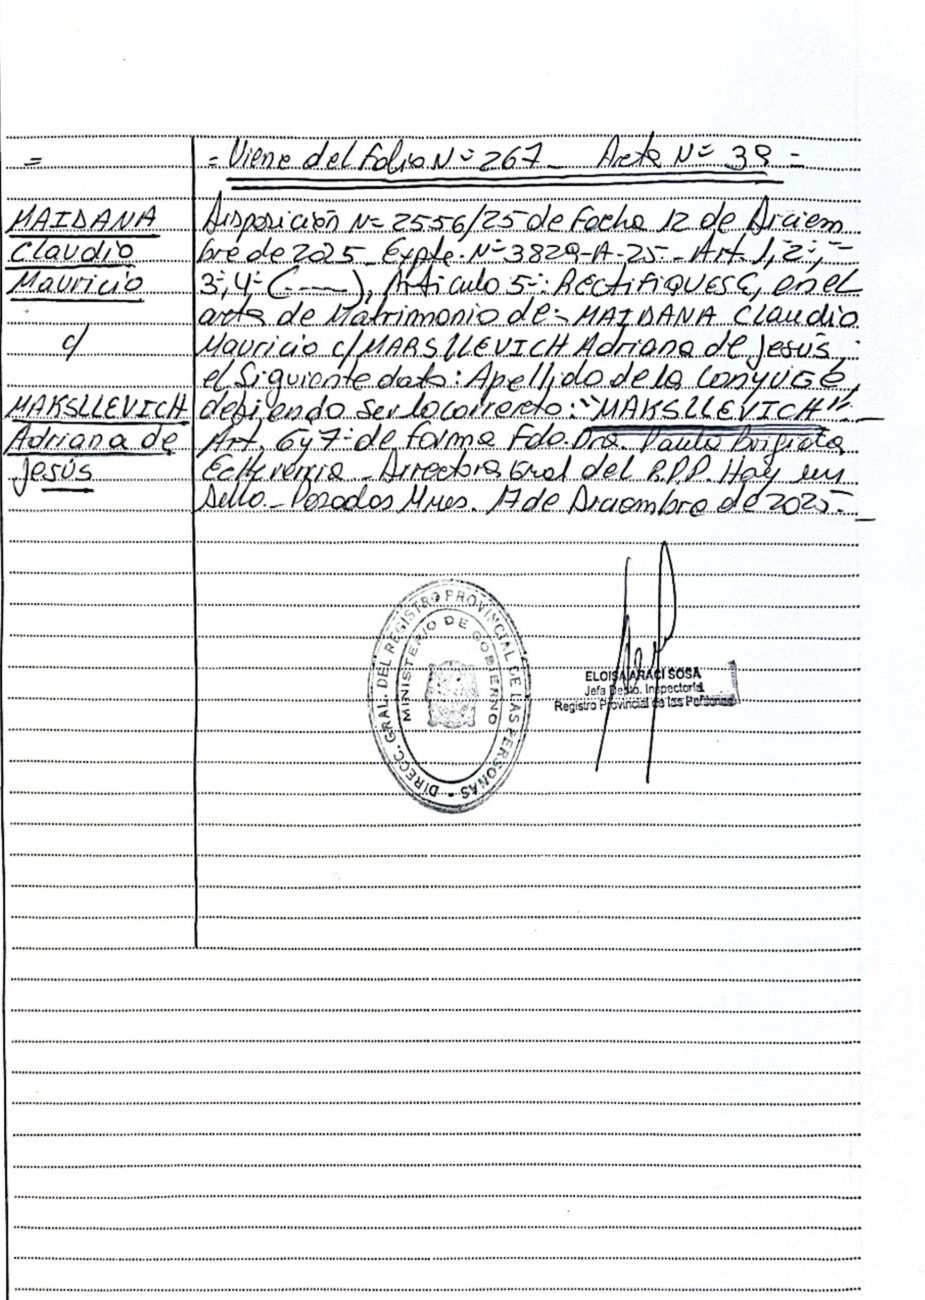 = Viene del Folio Nº 267 - Acta Nº 39 =
=
MAIDANA
Claudio
Mauricio
c/
MAKSLLEVICH
Adriana de
Jesús
Disposición Nº 2556/25 de Fecha 12 de Diciem
bre de 2025 - Expte. Nº 3829-A-25 - Art. 1, 2º,
3º, 4º (------), Artículo 5º: RECTIFIQUESE, en el
acta de Matrimonio de: MAIDANA Claudio
Mauricio c/ MARSLLEVICH Adriana de Jesús,
el Siguiente dato: Apellido de la CONYUGE,
debiendo ser lo correcto: "MAKSLLEVICH" -
Art. 6 y 7º de forma Fdo. Dra. Paula Brigida
Echeverria - Directora Gral del R.P.P. Hay un
Sello.- Posadas Mnes. 17 de Diciembre de 2025.-
DIRECC. GRAL. DEL REGISTRO PROVINCIAL DE LAS PERSONAS
MINISTERIO DE GOBIERNO
ELOISA ARACI SOSA
Jefa Depto. Inspectoría
Registro Provincial de las Personas